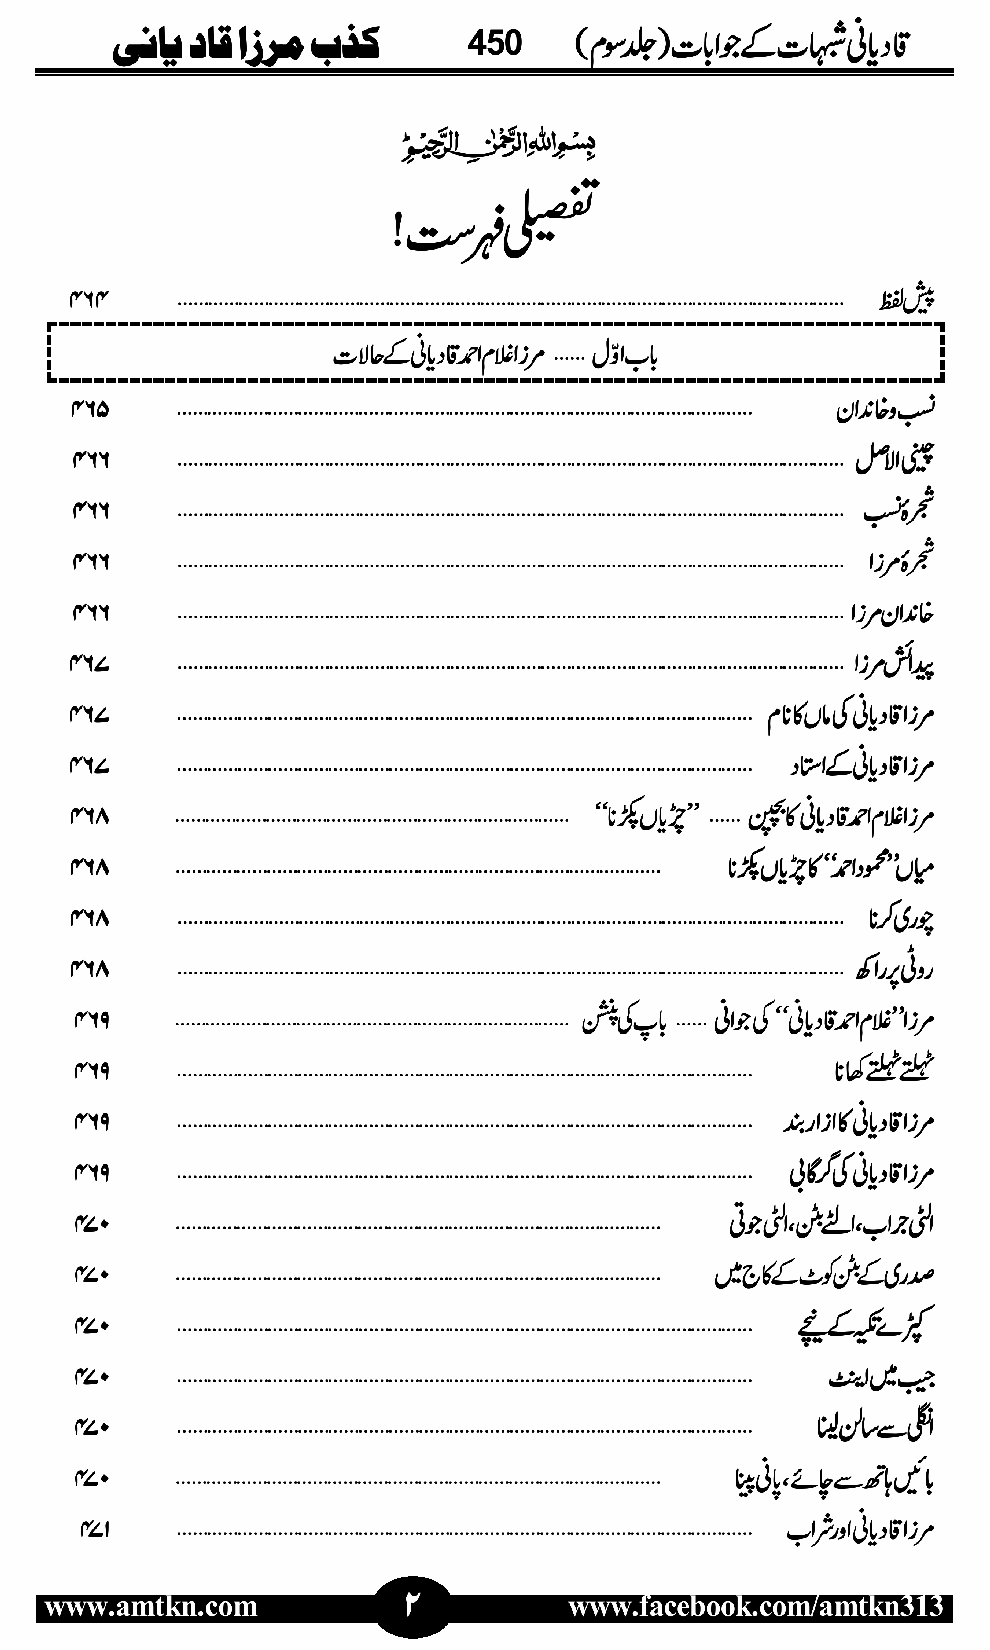 قادیانی شبہات کے جوابات (جلد سوم) 450 کذب مرزا قادیانی
بسم اللہ الرحمن الرحیم
تفصیلی فہرست!
پیش لفظ ۴۶۴
باب اوّل ...... مرزا غلام احمد قادیانی کے حالات
نسب و خاندان ۴۶۵
چینی الاصل ۴۶۶
شجرۂ نسب ۴۶۶
شجرۂ مرزا ۴۶۶
خاندان مرزا ۴۶۶
پیدائش مرزا ۴۶۷
مرزا قادیانی کی ماں کا نام ۴۶۷
مرزا قادیانی کے استاد ۴۶۷
مرزا غلام احمد قادیانی کا بچپن ...... ”چڑیاں پکڑنا“ ۴۶۸
میاں ”محمود احمد“ کا چڑیاں پکڑنا ۴۶۸
چوری کرنا ۴۶۸
روٹی پر راکھ ۴۶۸
مرزا ”غلام احمد قادیانی“ کی جوانی ...... باپ کی پنشن ۴۶۹
ٹہلتے ٹہلتے کھانا ۴۶۹
مرزا قادیانی کا ازار بند ۴۶۹
مرزا قادیانی کی گرگابی ۴۶۹
الٹی جراب، الٹے بٹن، الٹی جوتی ۴۷۰
صدری کے بٹن کوٹ کے کاج میں ۴۷۰
کپڑے تکیہ کے نیچے ۴۷۰
جیب میں اینٹ ۴۷۰
انگلی سے سالن لینا ۴۷۰
بائیں ہاتھ سے چائے، پانی پینا ۴۷۰
مرزا قادیانی اور شراب ۴۷۱
www.amtkn.com ۲ www.facebook.com/amtkn313